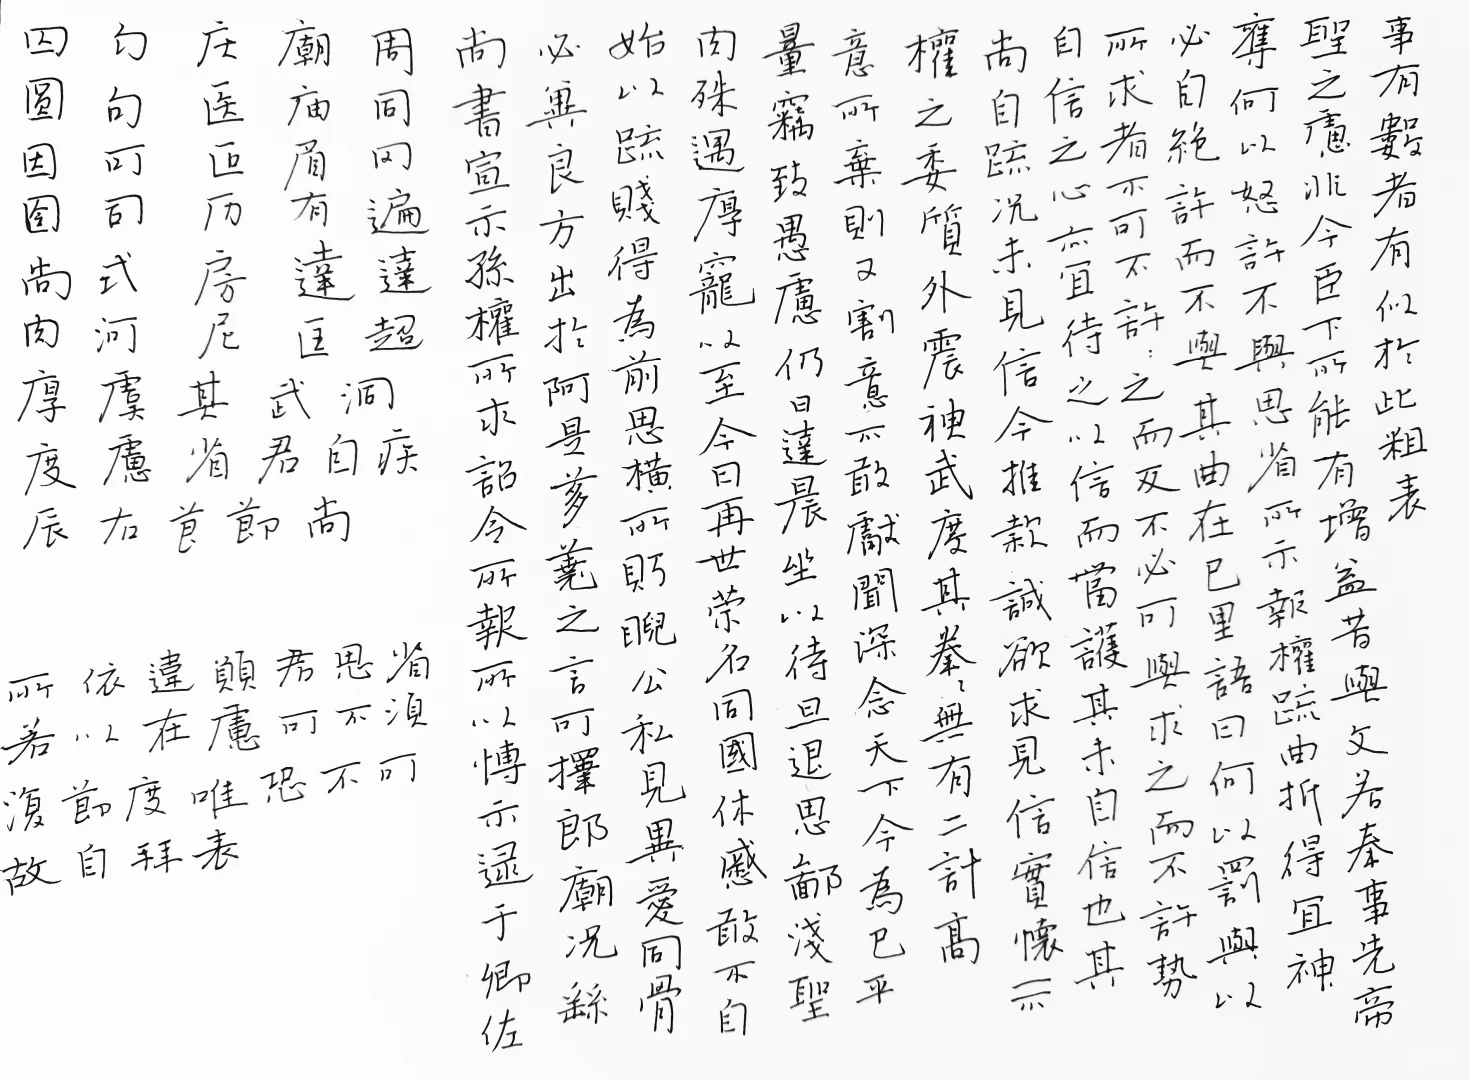 尚書宣示孫權所求詔令所報所以博示逯于卿佐
必冀良方出於阿是芻蕘之言可擇郎廟況繇
始以疏賤得為前恩橫所眄睨公私見異愛同骨
肉殊遇厚寵以至今日再世榮名同國休慼敢不自
量竊致愚慮仍日達晨坐以待旦退思鄙淺聖
意所棄則又割意不敢獻聞深念天下今為已平
權之委質外震神武度其拳〻無有二計高
尚自疏況未見信今推款誠欲求見信實懷不
自信之心亦宜待之以信而當護其未自信也其
所求者不可不許〻之而反不必可與求之而不許勢
必自絕許而不與其曲在己里語曰何以罰與以
奪何以怒許不與思省所示報權疏曲折得宜神
聖之慮非今臣下所能有增益昔與文若奉事先帝
事有數者有似於此粗表
勾庄廟周
圓句医庙同
因可匝眉
司历有遍
尚式房達達
肉河尼匡超
厚虞其武洞
度慮省君自疾
辰右首節尚
所依違願君思省
若以在慮可不須
復節度唯恐不可
故自拜表